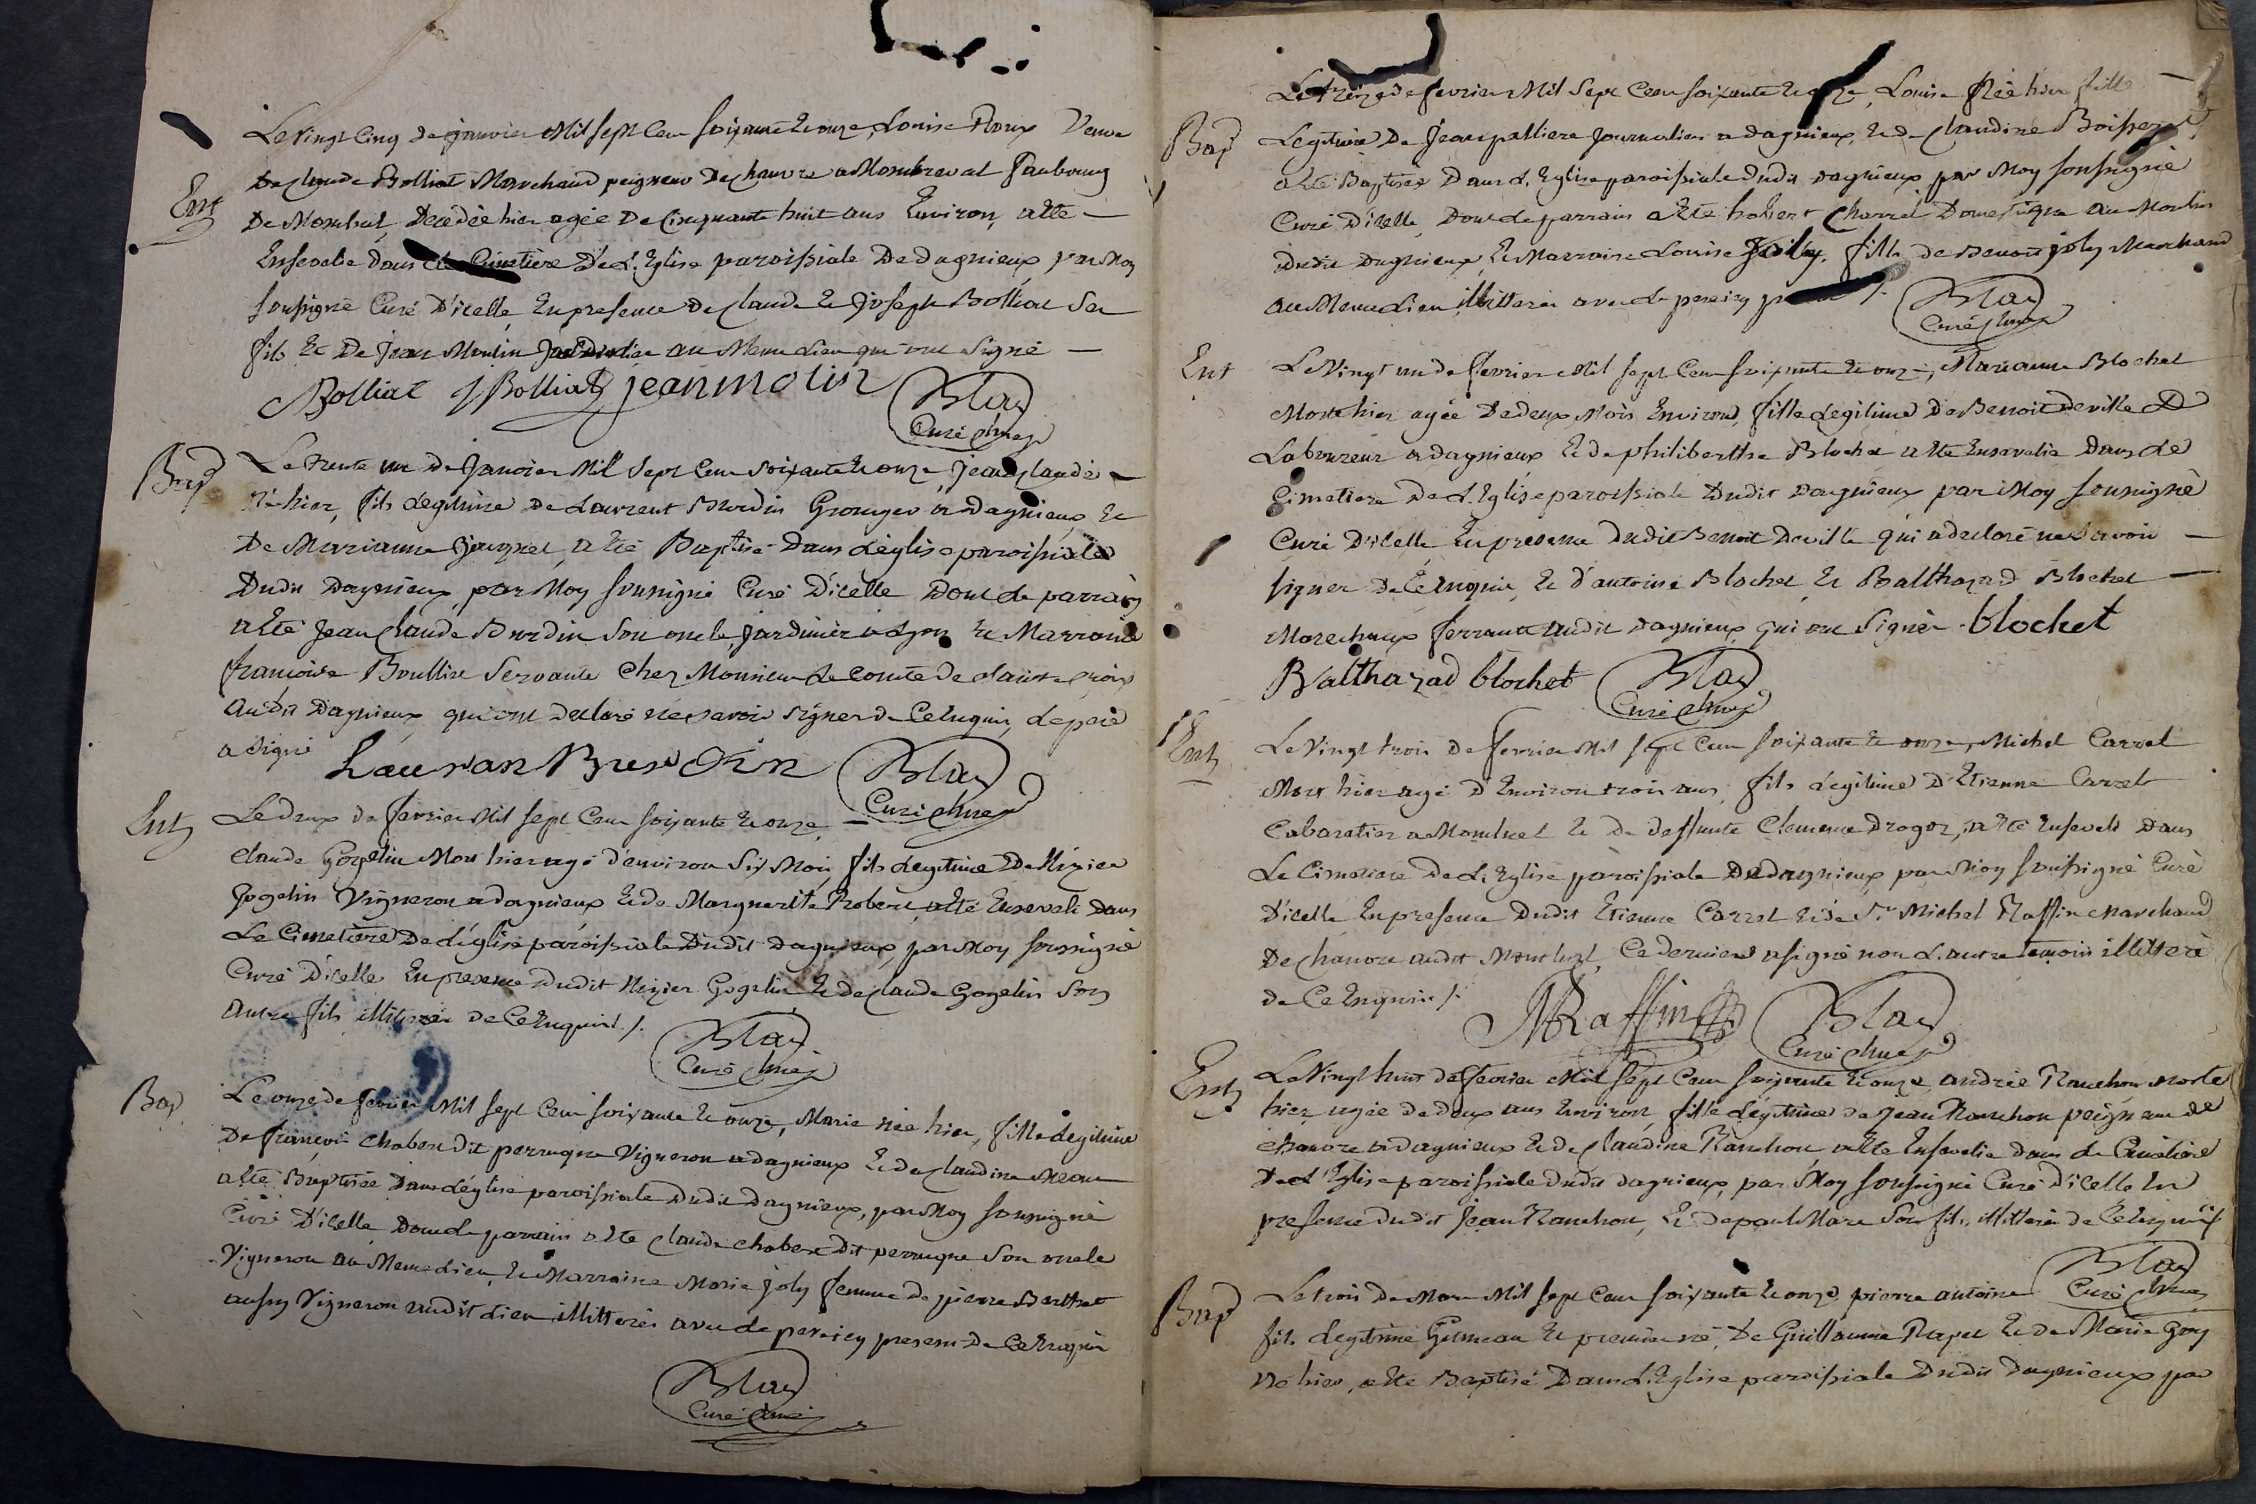 Le Vingt Cinq de janvier Mil sept Cent soixante et onze, Louise Roux Veuve
Ent
De Claude Bolliat Marchand peigneur De chanvre a Montbreval faubourg
De Montluel, Decedée hier agée De Cinquante huit ans Environ, a eté —
Ensevelie dans le Cimetiere De L'Eglise paroissiale De dagnieux par Moy
soussigné Curé D'icelle, En presence De Claude et joseph Bolliat Ses
fils Et De Jean Moulin au Meme Lieu qui ont Signé —
Bolliat JBolliat jean molin
Blay
Curé
Bap
Le trente un De Janvier Mil Sept Cent Soixante et onze, Jean Claude —
né hier, fils Legitime De Laurent Burdin Granger a Dagnieux, et
De Marianne Jacquet, a eté Baptisé Dans L'eglise paroissiale
Dudit Dagnieux, par Moy soussigné Curé D'icelle Dont Le parrain
a eté Jean Claude Burdin Son oncle, jardinier a Lyon et Marraine
françoise Boullie Servante Chez Monsieur Le Comte De Sainte Croix
audit Dagnieux, qui ont Declaré ne savoir Signer De Ce Enquis, Le pere
a Signé
Lauran Burdin
Blay
Curé
Ent
Le deux de fevrier Mil sept Cent soixante et onze, —
Claude Gogelin Mort hier agé d'environ six Mois, fils Legitime De Nizier
Gogelin Vigneron a dagnieux et de Marguerite Robert, a eté Enseveli dans
Le Cimetiere De L'eglise paroissiale Dudit Dagnieux, par Moy soussigné
Curé D'icelle En presence Dudit Nizier Gogelin et de Claude Gogelin Son
autre fils illitterés de Ce Enquis ./.
Blay
Curé
Bap
Le onze de fevrier Mil sept Cent soixante et onze, Marie née hier, fille Legitime
De françois Chabert dit perruque Vigneron a dagnieux et de Claudine
a eté Baptisée Dans L'eglise paroissiale Dudit Dagnieux, par Moy soussigné
Curé D'icelle, Dont Le parrain a eté Claude Chabert Dit perruque Son oncle
Vigneron au Meme Lieu, et Marraine Marie joly femme de pierre Berthet
aussy Vigneron audit Lieu illitterés avec Le pere icy present De Ce Enquis
Blay
Curé
Le treize de fevrier Mil Sept Cent soixante et onze, Louise Née hier fille —
Bap
Legitime De Jean palliere Journalier a dagnieux, et de Claudine
a eté Baptisée Dans L'Eglise paroissiale dudit dagnieux par Moy soussigné
Curé D'icelle, Dont Le parrain a eté Charrel Domestique au Moulin
dudit Dagnieux, et Marraine Louise Joly, fille de Benoit joly Marchand
au Meme Lieu illitterés avec Le pere icy present ./.
Blay
Curé
Ent
Le Vingt un de fevrier Mil sept Cent soixante et onze, Marianne Blochet
Morte hier agée De deux Mois Environ, fille Legitime De Benoit Deville
Laboureur a dagnieux et de philiberthe Blochet a eté Ensevelie Dans Le
Cimetiere De L'Eglise paroissiale Dudit Dagnieux par Moy soussigné
Curé D'icelle, En presence Dudit Benoit Deville qui a declaré ne Savoir —
signer De Ce Enquis, et d'antoine Blochet et Balthazard Blochet —
Marechaux ferrants audit Dagnieux qui ont Signés. blochet
Balthazad blochet
Blay
Curé
Ent
Le Vingt trois De fevrier Mil sept Cent soixante et onze, Michel Carrel
Mort hier agé D'Environ trois ans, fils Legitime D'Etienne Carrel
Cabaretier a Montluel et De deffunte Clemence Drogoz, a eté Enseveli Dans
Le Cimetiere De L'Eglise paroissiale De dagnieux par Moy soussigné Curé
D'icelle En presence Dudit Etienne Carrel et de Sr Michel Raffin Marchand
De chanvre audit Montluel, Ce dernier a signé non L'autre temoin illitteré
de Ce Enquis ./.
MRaffin
Blay
Curé
Ent
Le Vingt huit De fevrier Mil sept Cent soixante et onze, andrée Ranchon Morte
hier agée de deux ans Environ, fille Legitime de Jean Ranchon peigneur de
chanvre a dagnieux et de Claudine Ranchon, a eté Ensevelie Dans Le Cimetiere
De L'Eglise paroissiale dudit dagnieux, par Moy soussigné Curé D'icelle En
presence dudit Jean Ranchon, et de paul Mare Son fils, illitterés de Ce Enquis ./.
Blay
Curé
Bap
Le trois De Mars Mil sept Cent soixante et onze, pierre antoine
fils Legitime Gemeau et premier né, De Guillaume Rapet et de Marie Goy
Né hier, a eté Baptisé Dans L'Eglise paroissiale Dudit Dagnieux par